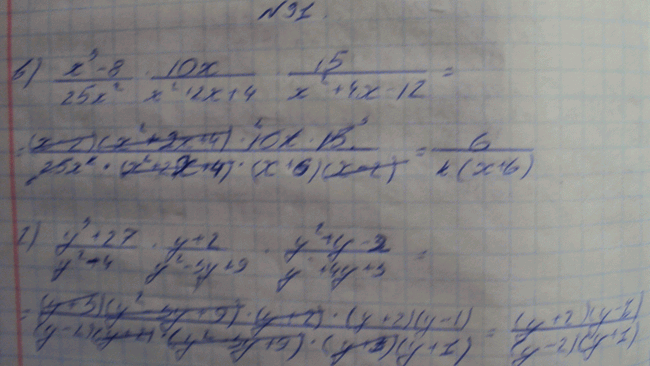 № 31.
в) (x³-8)/(25x²) · (10x)/(x²+2x+4) · 15/(x²+4x-12) =
= ((x-2)(x²+2x+4) · 10x · 15)/(25x² · (x²+2x+4) · (x+6)(x-2)) = 6/(x(x+6))
г) (y³+27)/(y²-4) · (y+2)/(y²-3y+9) · (y²+y-2)/(y²+4y+3) =
= ((y+3)(y²-3y+9) · (y+2) · (y+2)(y-1))/((y-2)(y+2) · (y²-3y+9) · (y+3)(y+1)) = ((y+2)(y-1))/((y-2)(y+1))